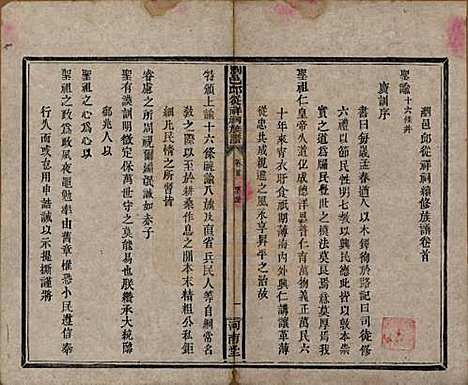 瀏邑邱從祥祠續修族譜卷首
聖諭十六條并
廣訓序
書曰每歲孟春遒人以木鐸徇於路記曰司徒修
六禮以節民性明七教以興民德此皆以敦本崇
實之道為牖民覺世之模法莫良焉意莫厚焉我
聖祖仁皇帝久道化成德洋恩普仁育萬物義正萬民六
十年來宵衣旰食祇期薄海內外興仁講讓革薄
從忠共成親遜之風永享昇平之治故
特頒上諭十六條曉諭八旗及直省兵民人等自綱常名
教之際以至於耕桑作息之間本末精粗公私鉅
細凡民情之所習皆
睿慮之所周視爾編氓誠如赤子
聖有謨訓明徵定保萬世守之莫能易也朕纘承大統臨
御兆人以
聖祖之心為心以
聖祖之政為政夙夜黽勉率由舊章惟恐小民遵信奉
行久而或怠用申誥誡以示提撕謹將
瀏邑邱從祥祠族譜
卷首
一
河南堂